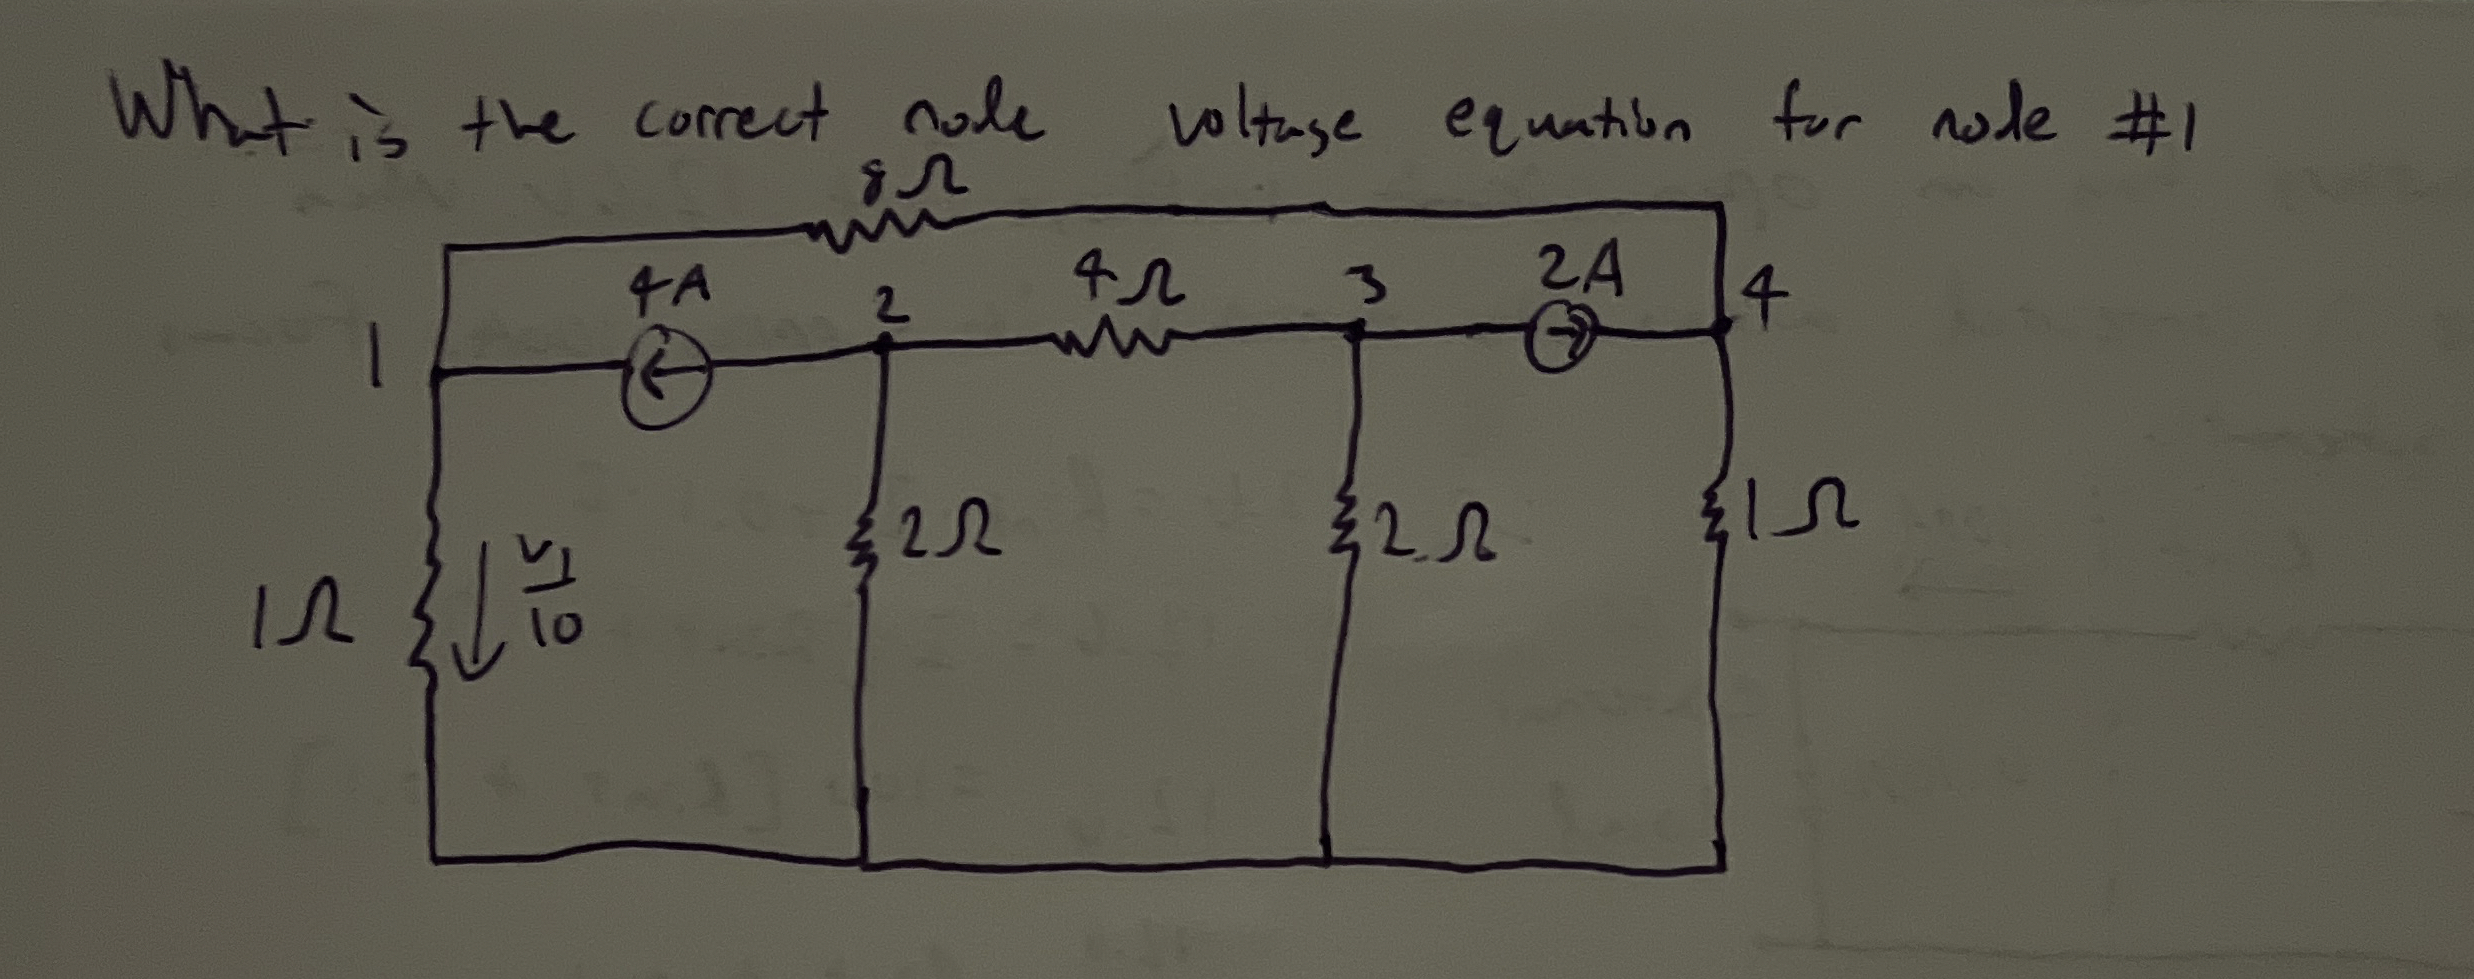 What is the correct node voltage equation for node #1
8Ω
4A
2
4Ω
3
2A
4
1
1Ω
V1
10
2Ω
2Ω
1Ω